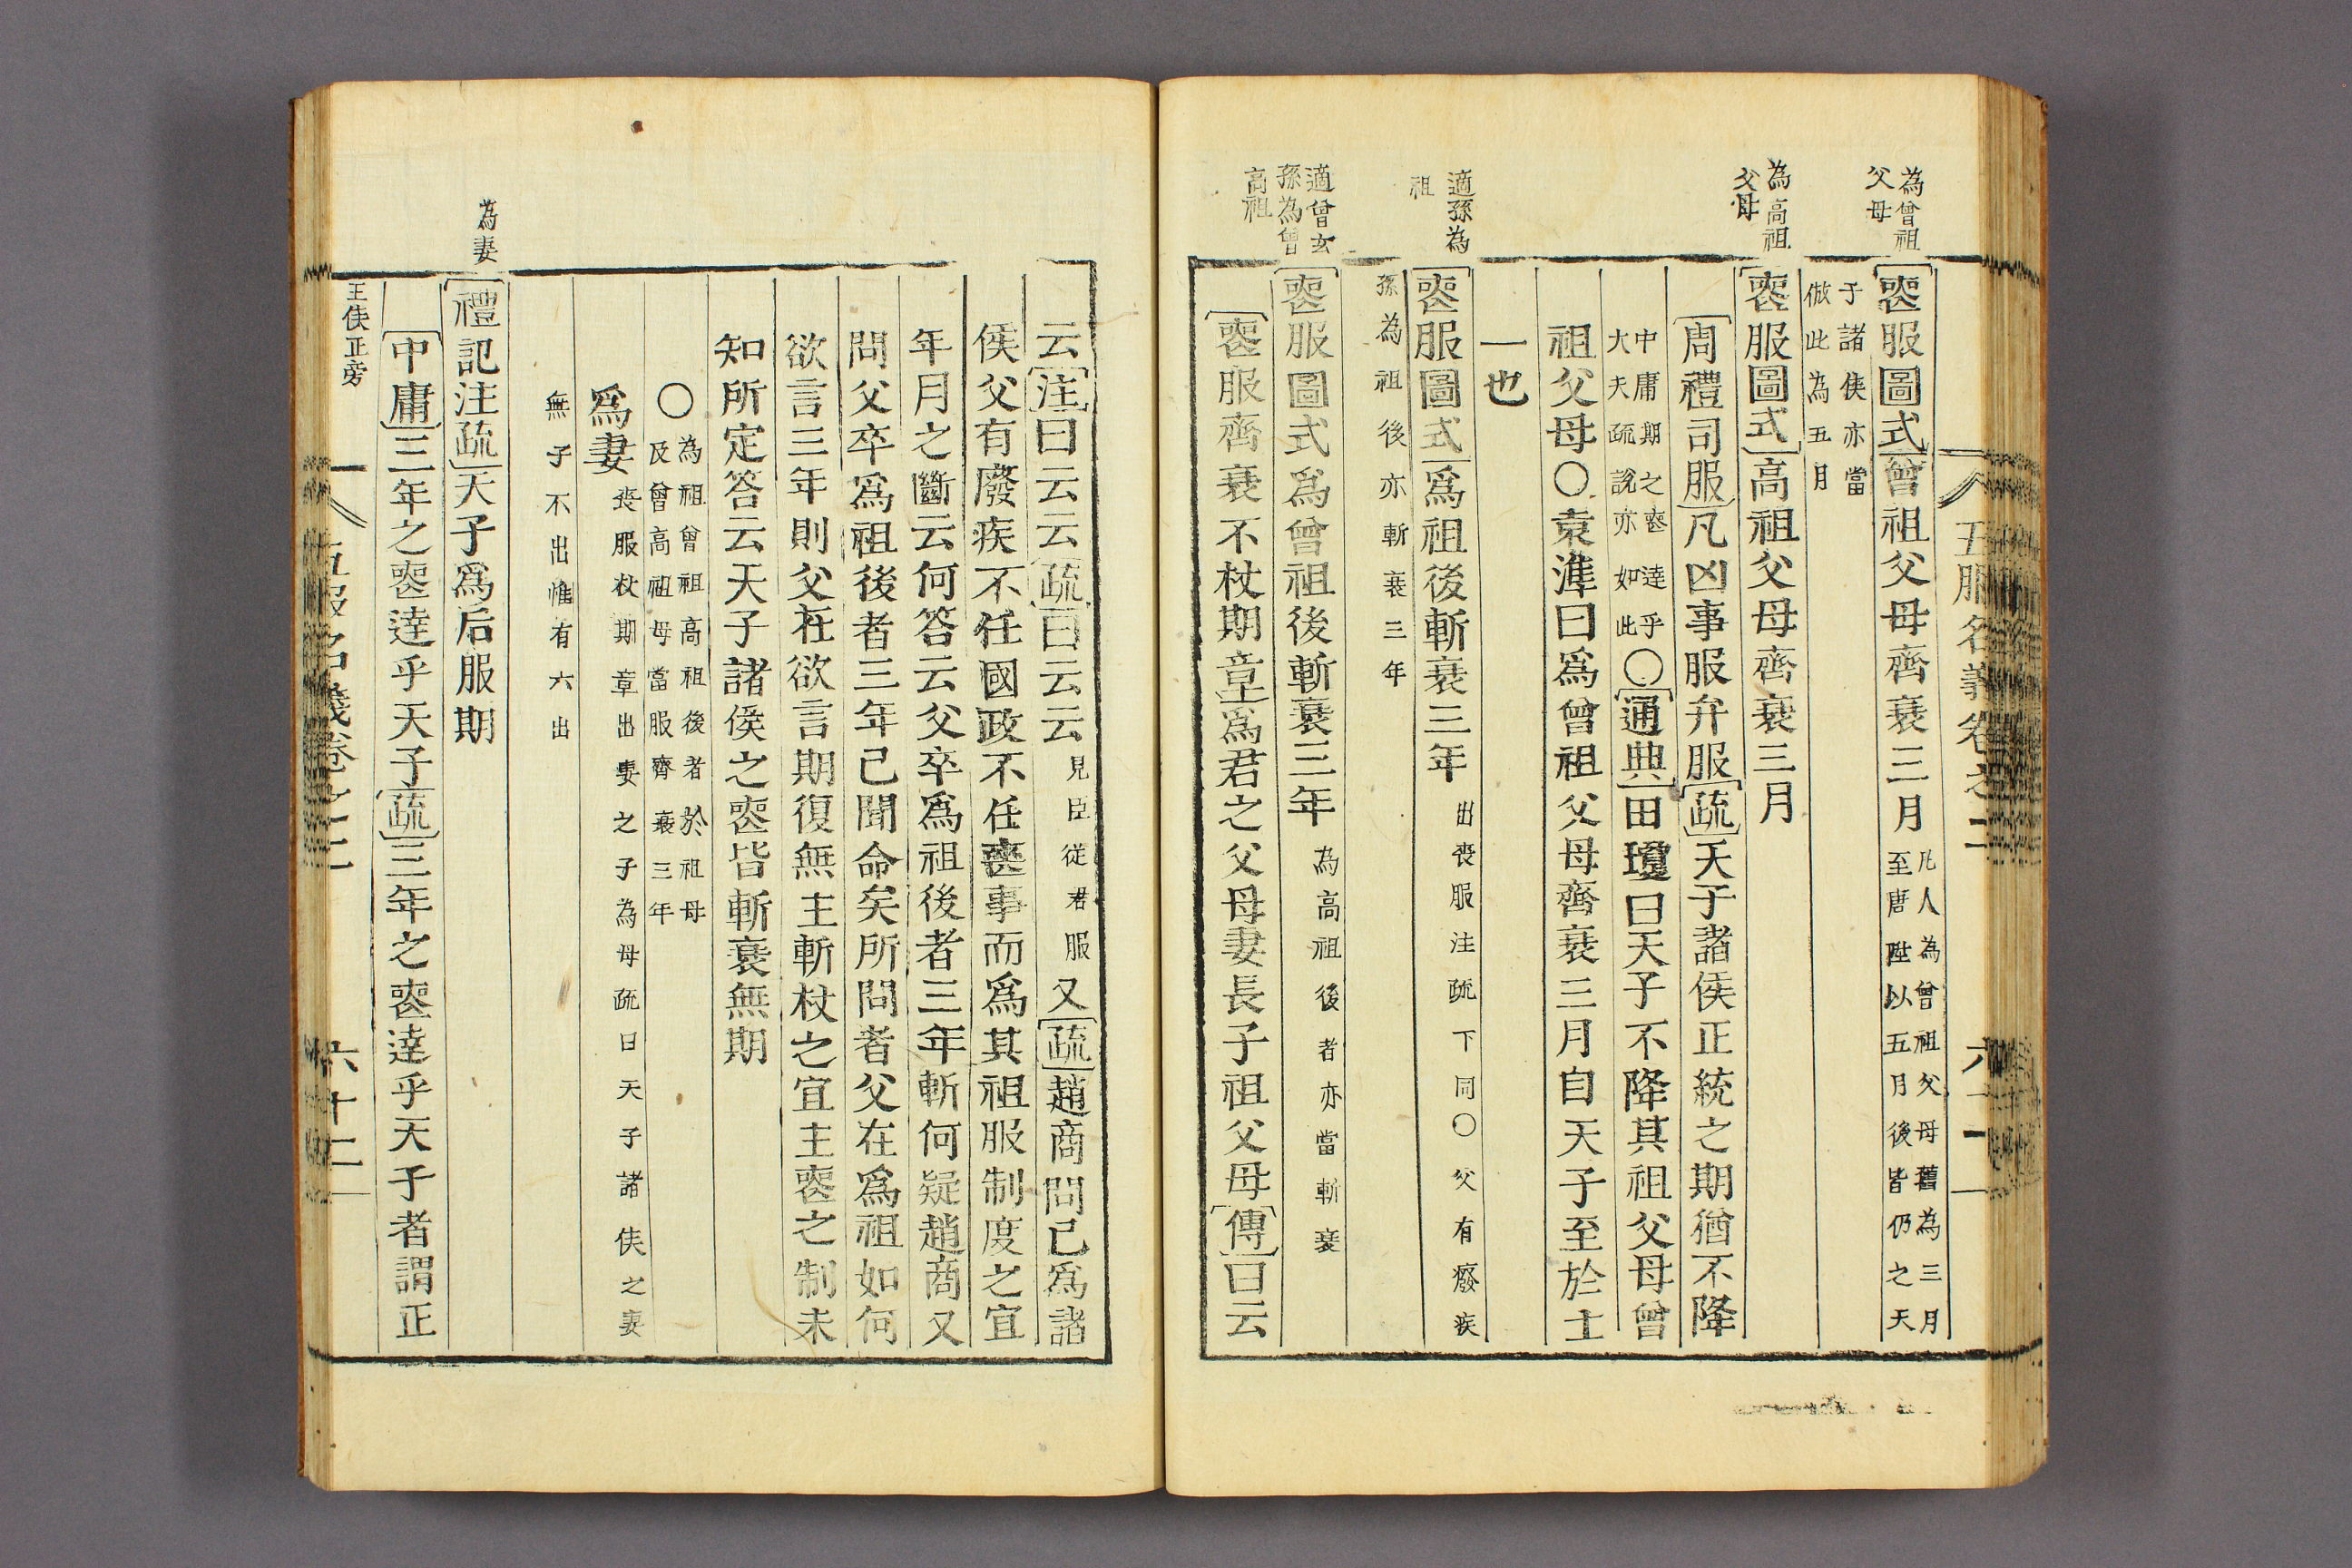 為曾祖
父母
為高祖
父母
適孫為
祖
適曾玄
孫為曾
高祖
五服名義卷之二
喪服圖式曾祖父母齊衰三月
凡人為曾祖父母舊為三月
至唐陞以五月後皆仍之天
子諸侯亦當
倣此為五月
喪服圖式高祖父母齊衰三月
周禮司服凡凶事服弁服疏天子諸侯正統之期猶不降
中庸期之喪達乎
大夫疏說亦如此
〇通典田瓊曰天子不降其祖父母曾
祖父母〇袁準曰爲曾祖父母齊衰三月自天子至於士
一也
喪服圖式爲祖後斬衰三年出喪服注疏下同〇父有癈疾
孫為祖後亦斬衰三年
喪服圖式爲曾祖後斬衰三年為高祖後者亦當斬衰
喪服齊衰不杖期章爲君之父母妻長子祖父母傳曰云
云注曰云云疏曰云云見臣從君服又疏趙商問已爲諸
侯父有廢疾不任國政不任喪事而爲其祖服制度之宜
年月之斷云何答云父卒爲祖後者三年斬何疑趙商又
問父卒爲祖後者三年已聞命矣所問者父在爲祖如何
欲言三年則父在欲言期復無主斬杖之宜主喪之制未
知所定答云天子諸侯之喪皆斬衰無期
〇為祖曾祖高祖後者於祖母
及曾高祖母當服齊衰三年
爲妻喪服杖期章出妻之子為母疏曰天子諸侯之妻
無子不出惟有六出
為妻
禮記注疏天子爲后服期
中庸三年之喪達乎天子疏三年之喪達乎天子者謂正
王侯正旁
六十二